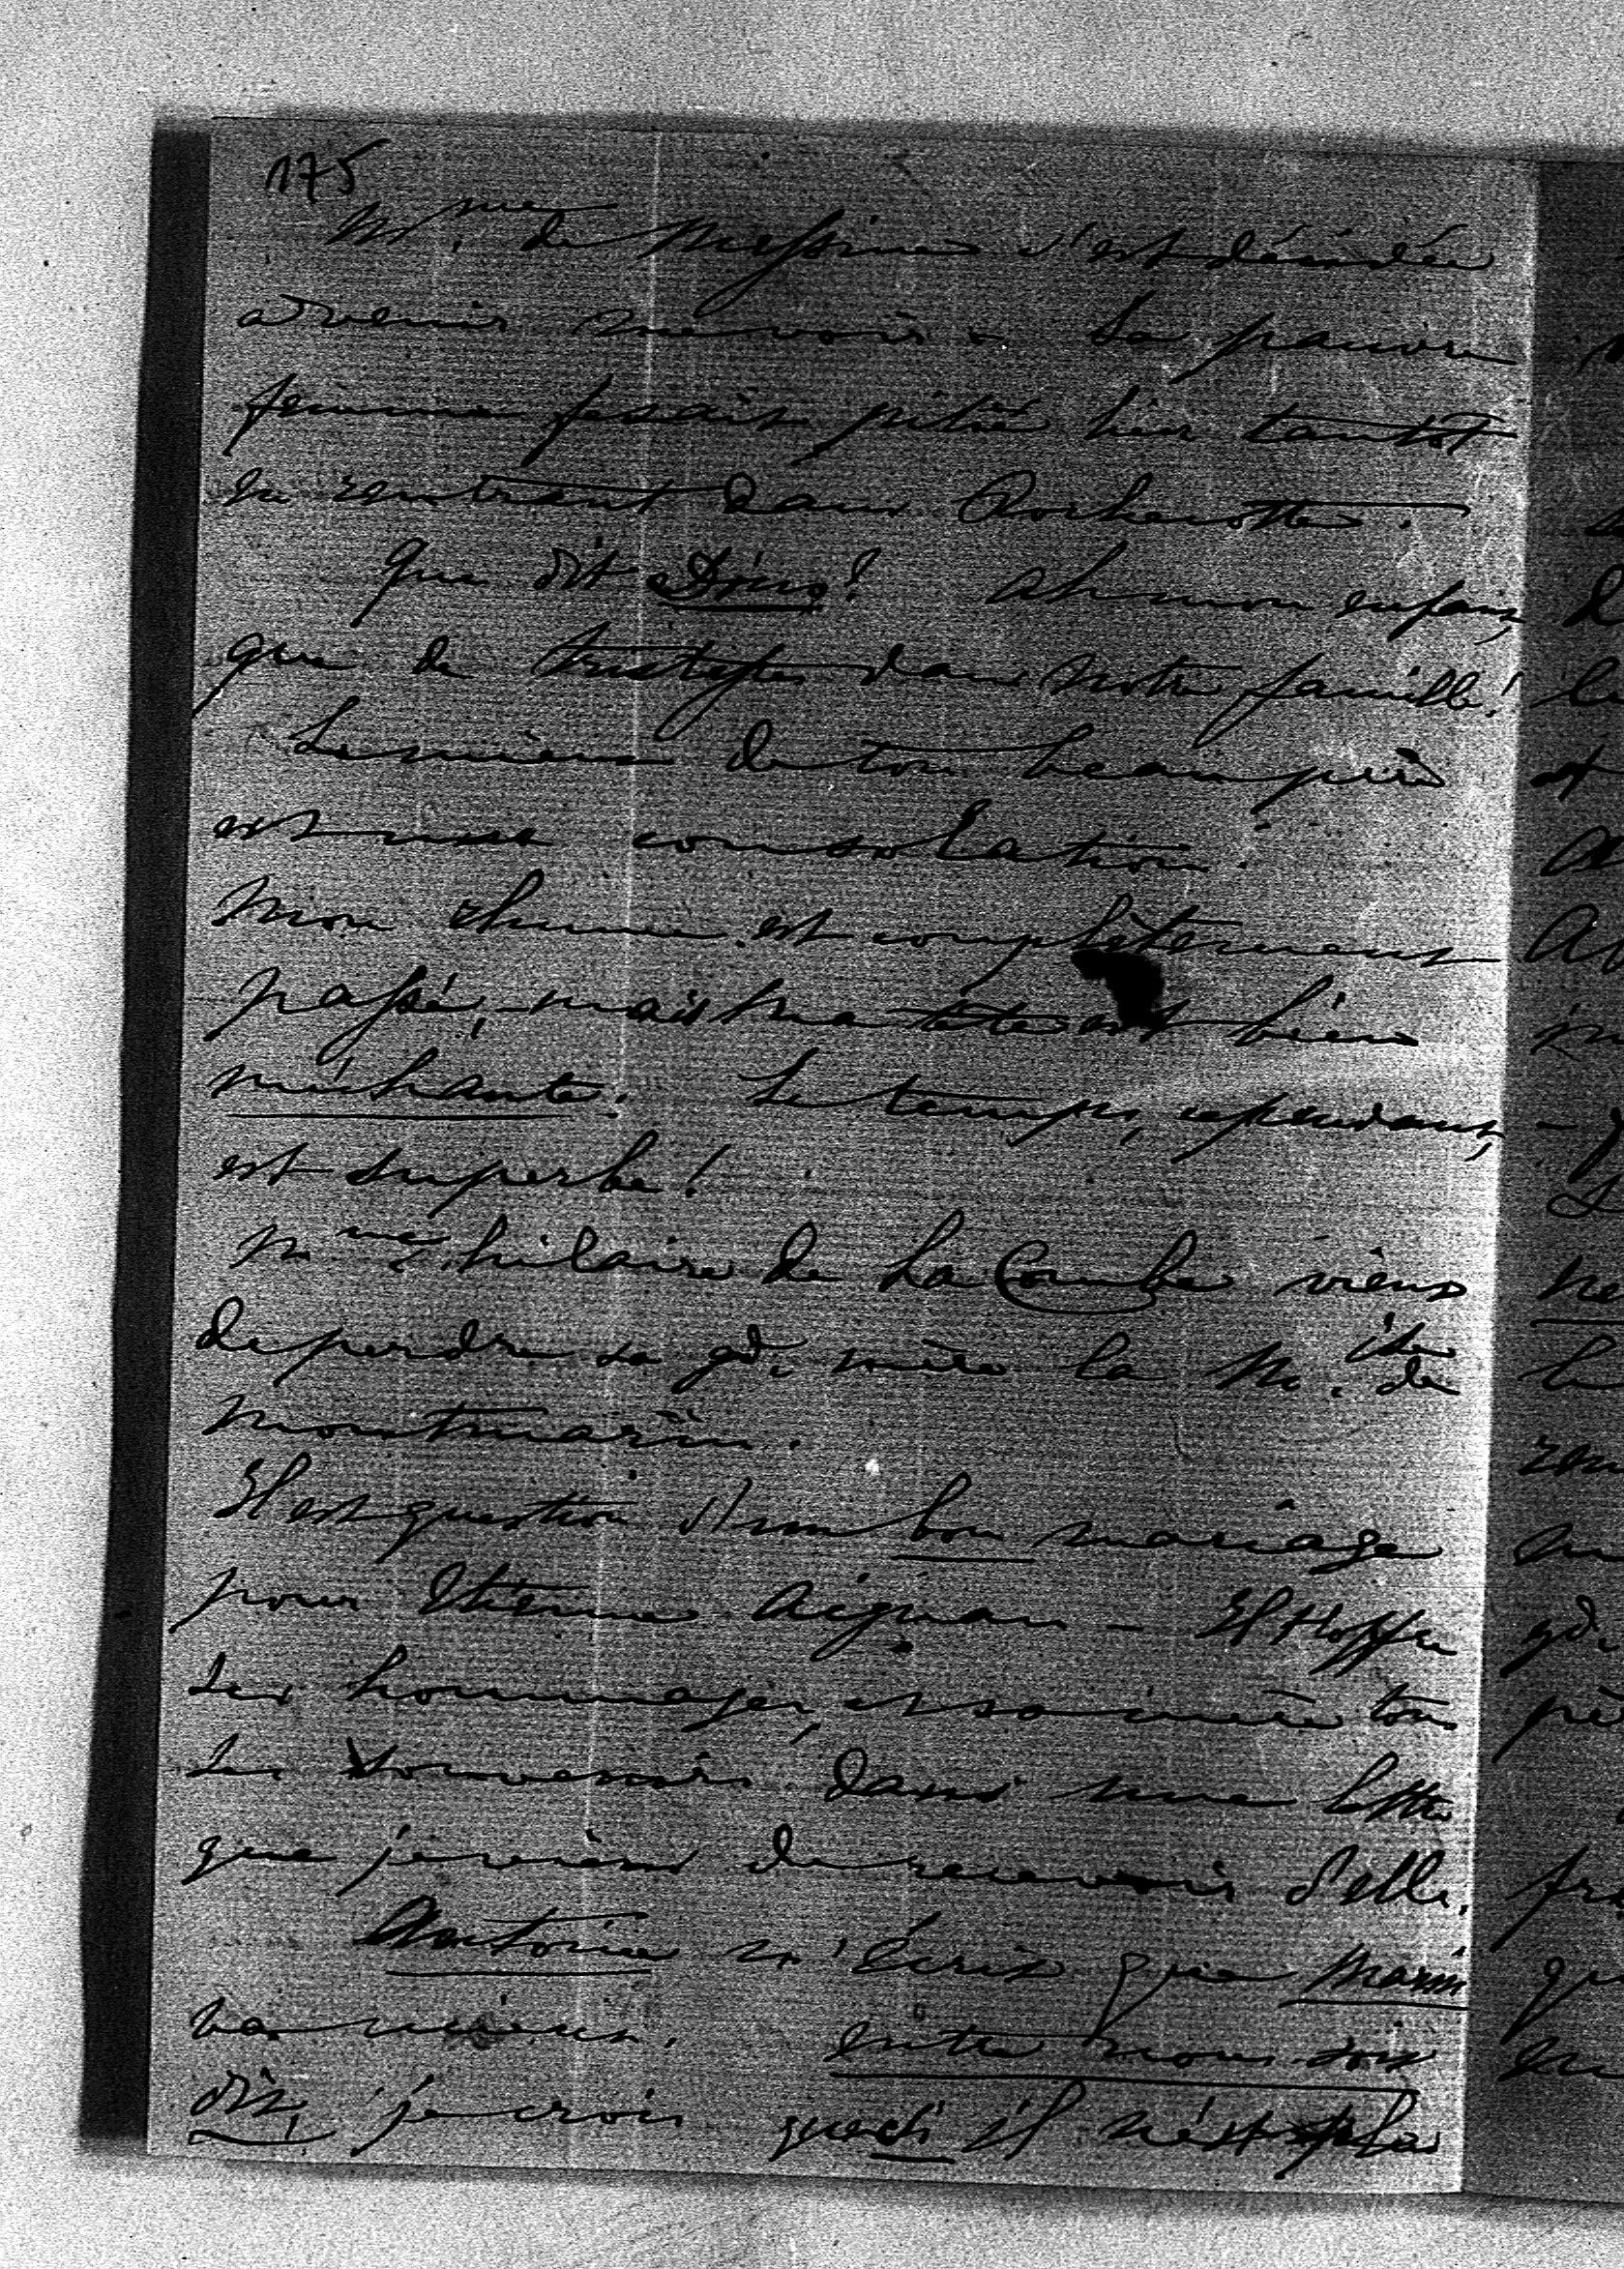 175
Mme. de Messine s'est décidée
à venir me voir. La pauvre
femme fesait pitié hier tantôt
en rentrant dans Rochecotte.
Que dit ! Ah mon enfant,
que de tristesses dans notre famille!
Le mieux de ton beau père
est une consolation.
Mon rhume est complètement
passé, mais ma tête est bien
méchante. Le temps, cependant,
est superbe!
Mme hilaire de La Combe vient
de perdre sa gde. mère la M.ise de
Montmarin.
Il est question d'un bon mariage
pour Etienne Aignan – Il t'offre
ses hommages, et sa mère tous
ses souvenirs dans une lettre
que je viens de recevoir d'elle.
Antoine m'écrit que Marie
va mieux. entre nous soit
dit, je crois que si il n'est